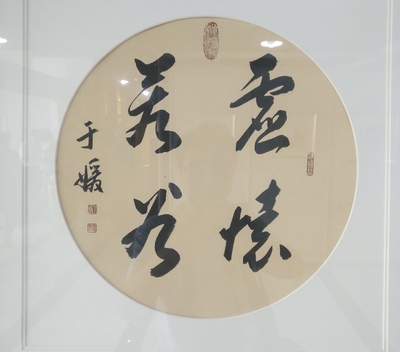 虚懐
若谷
于媛